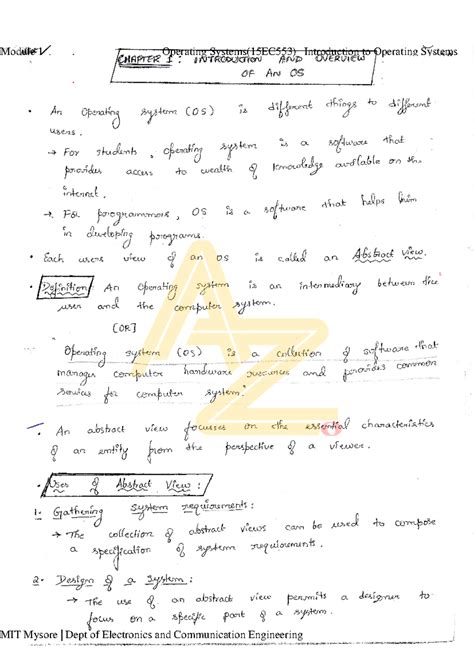 Module 1 Operating Systems(15EC553) Introduction to Operating Systems
CHAPTER 1: INTRODUCTION AND OVERVIEW
OF AN OS
• An operating system (OS) is different things to different
users.
→ For students, operating system is a software that
provides access to wealth of knowledge available on the
internet.
→ For programmers, OS is a software that helps him
in developing programs.
• Each users view of an OS is called an Abstract View.
• Definition: An operating system is an intermediary between the
user and the computer system.
[OR]
"Operating system (OS) is a collection of software that
manages computer hardware resources and provides common
services for computer system."
• An abstract view focusses on the essential characteristics
of an entity from the perspective of a viewer.
• Uses of Abstract View:
1. Gathering system requirements:
→ The collection of abstract views can be used to compose
a specification of system requirements.
2. Design of a system:
→ The use of an abstract view permits a designer to
focus on a specific part of a system.
MIT Mysore | Dept of Electronics and Communication Engineering